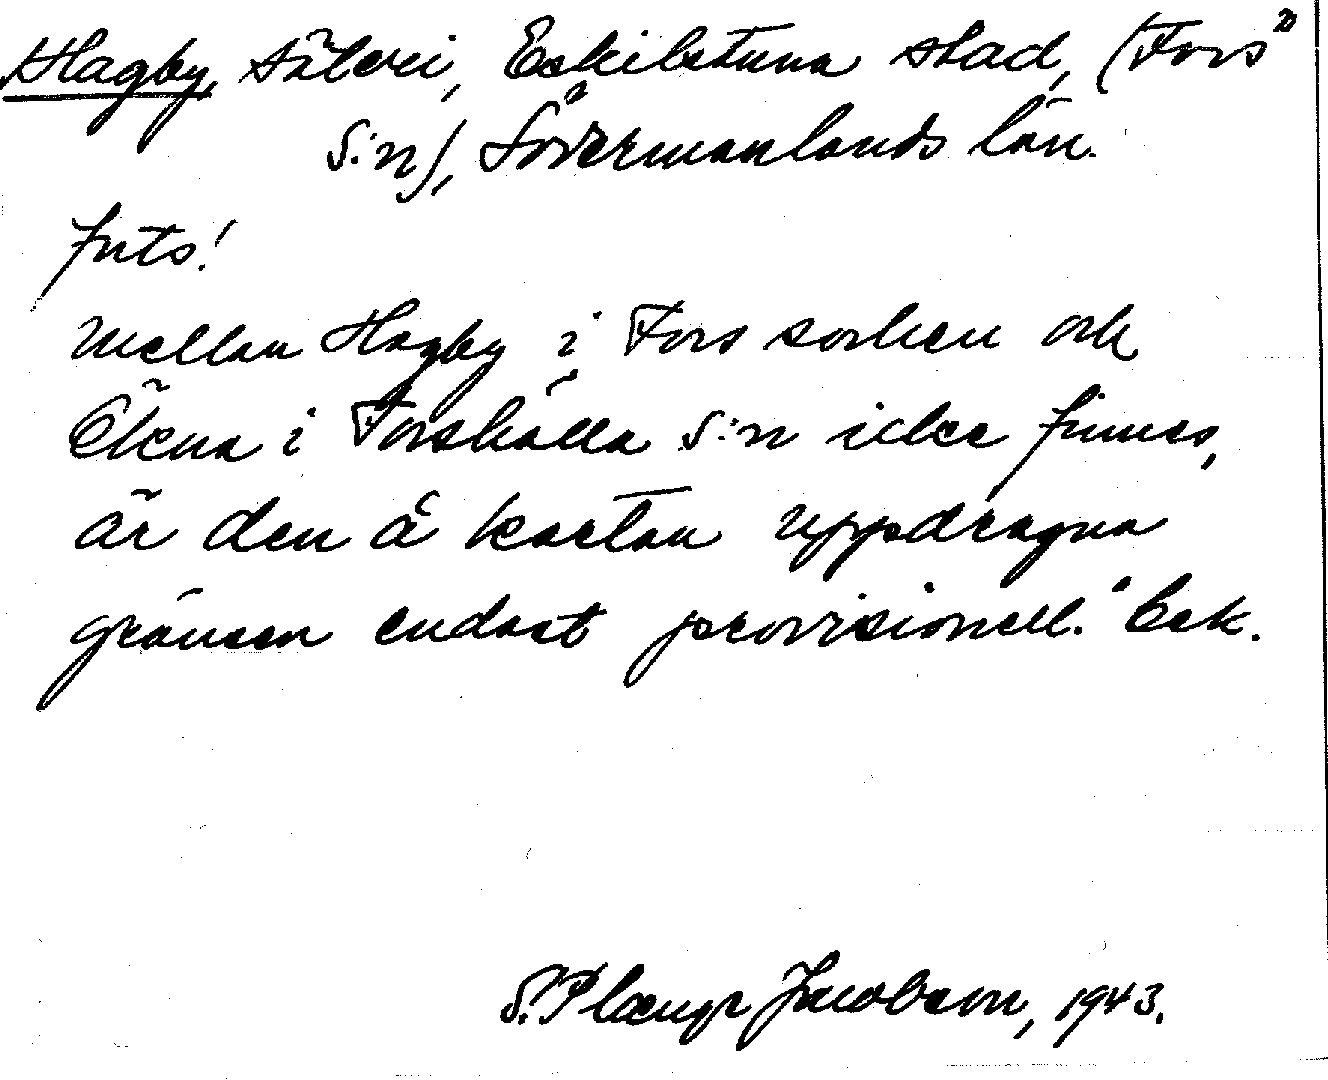 Hagby, säteri, Eskilstuna stad, (Fors
s:n), Södermanlands län.
forts!
Mellan Hagby i Fors socken och
Ökna i Forshälla s:n icke finnes,
är den å kartan uppdragna
gränsen endast provisionell." Bek.
S. Plænge Jacobson, 1943.